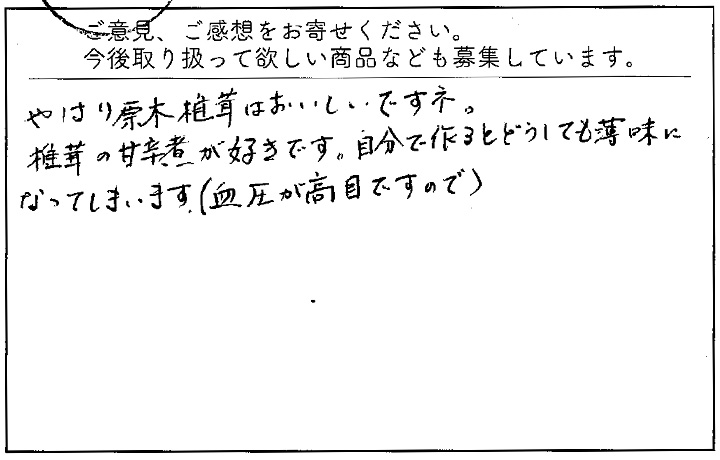 ご意見、ご感想をお寄せください。
今後取り扱って欲しい商品なども募集しています。
やはり原木椎茸はおいしいですネ。
椎茸の甘辛煮が好きです。自分で作るとどうしても薄味に
なってしまいます(血圧が高目ですので)